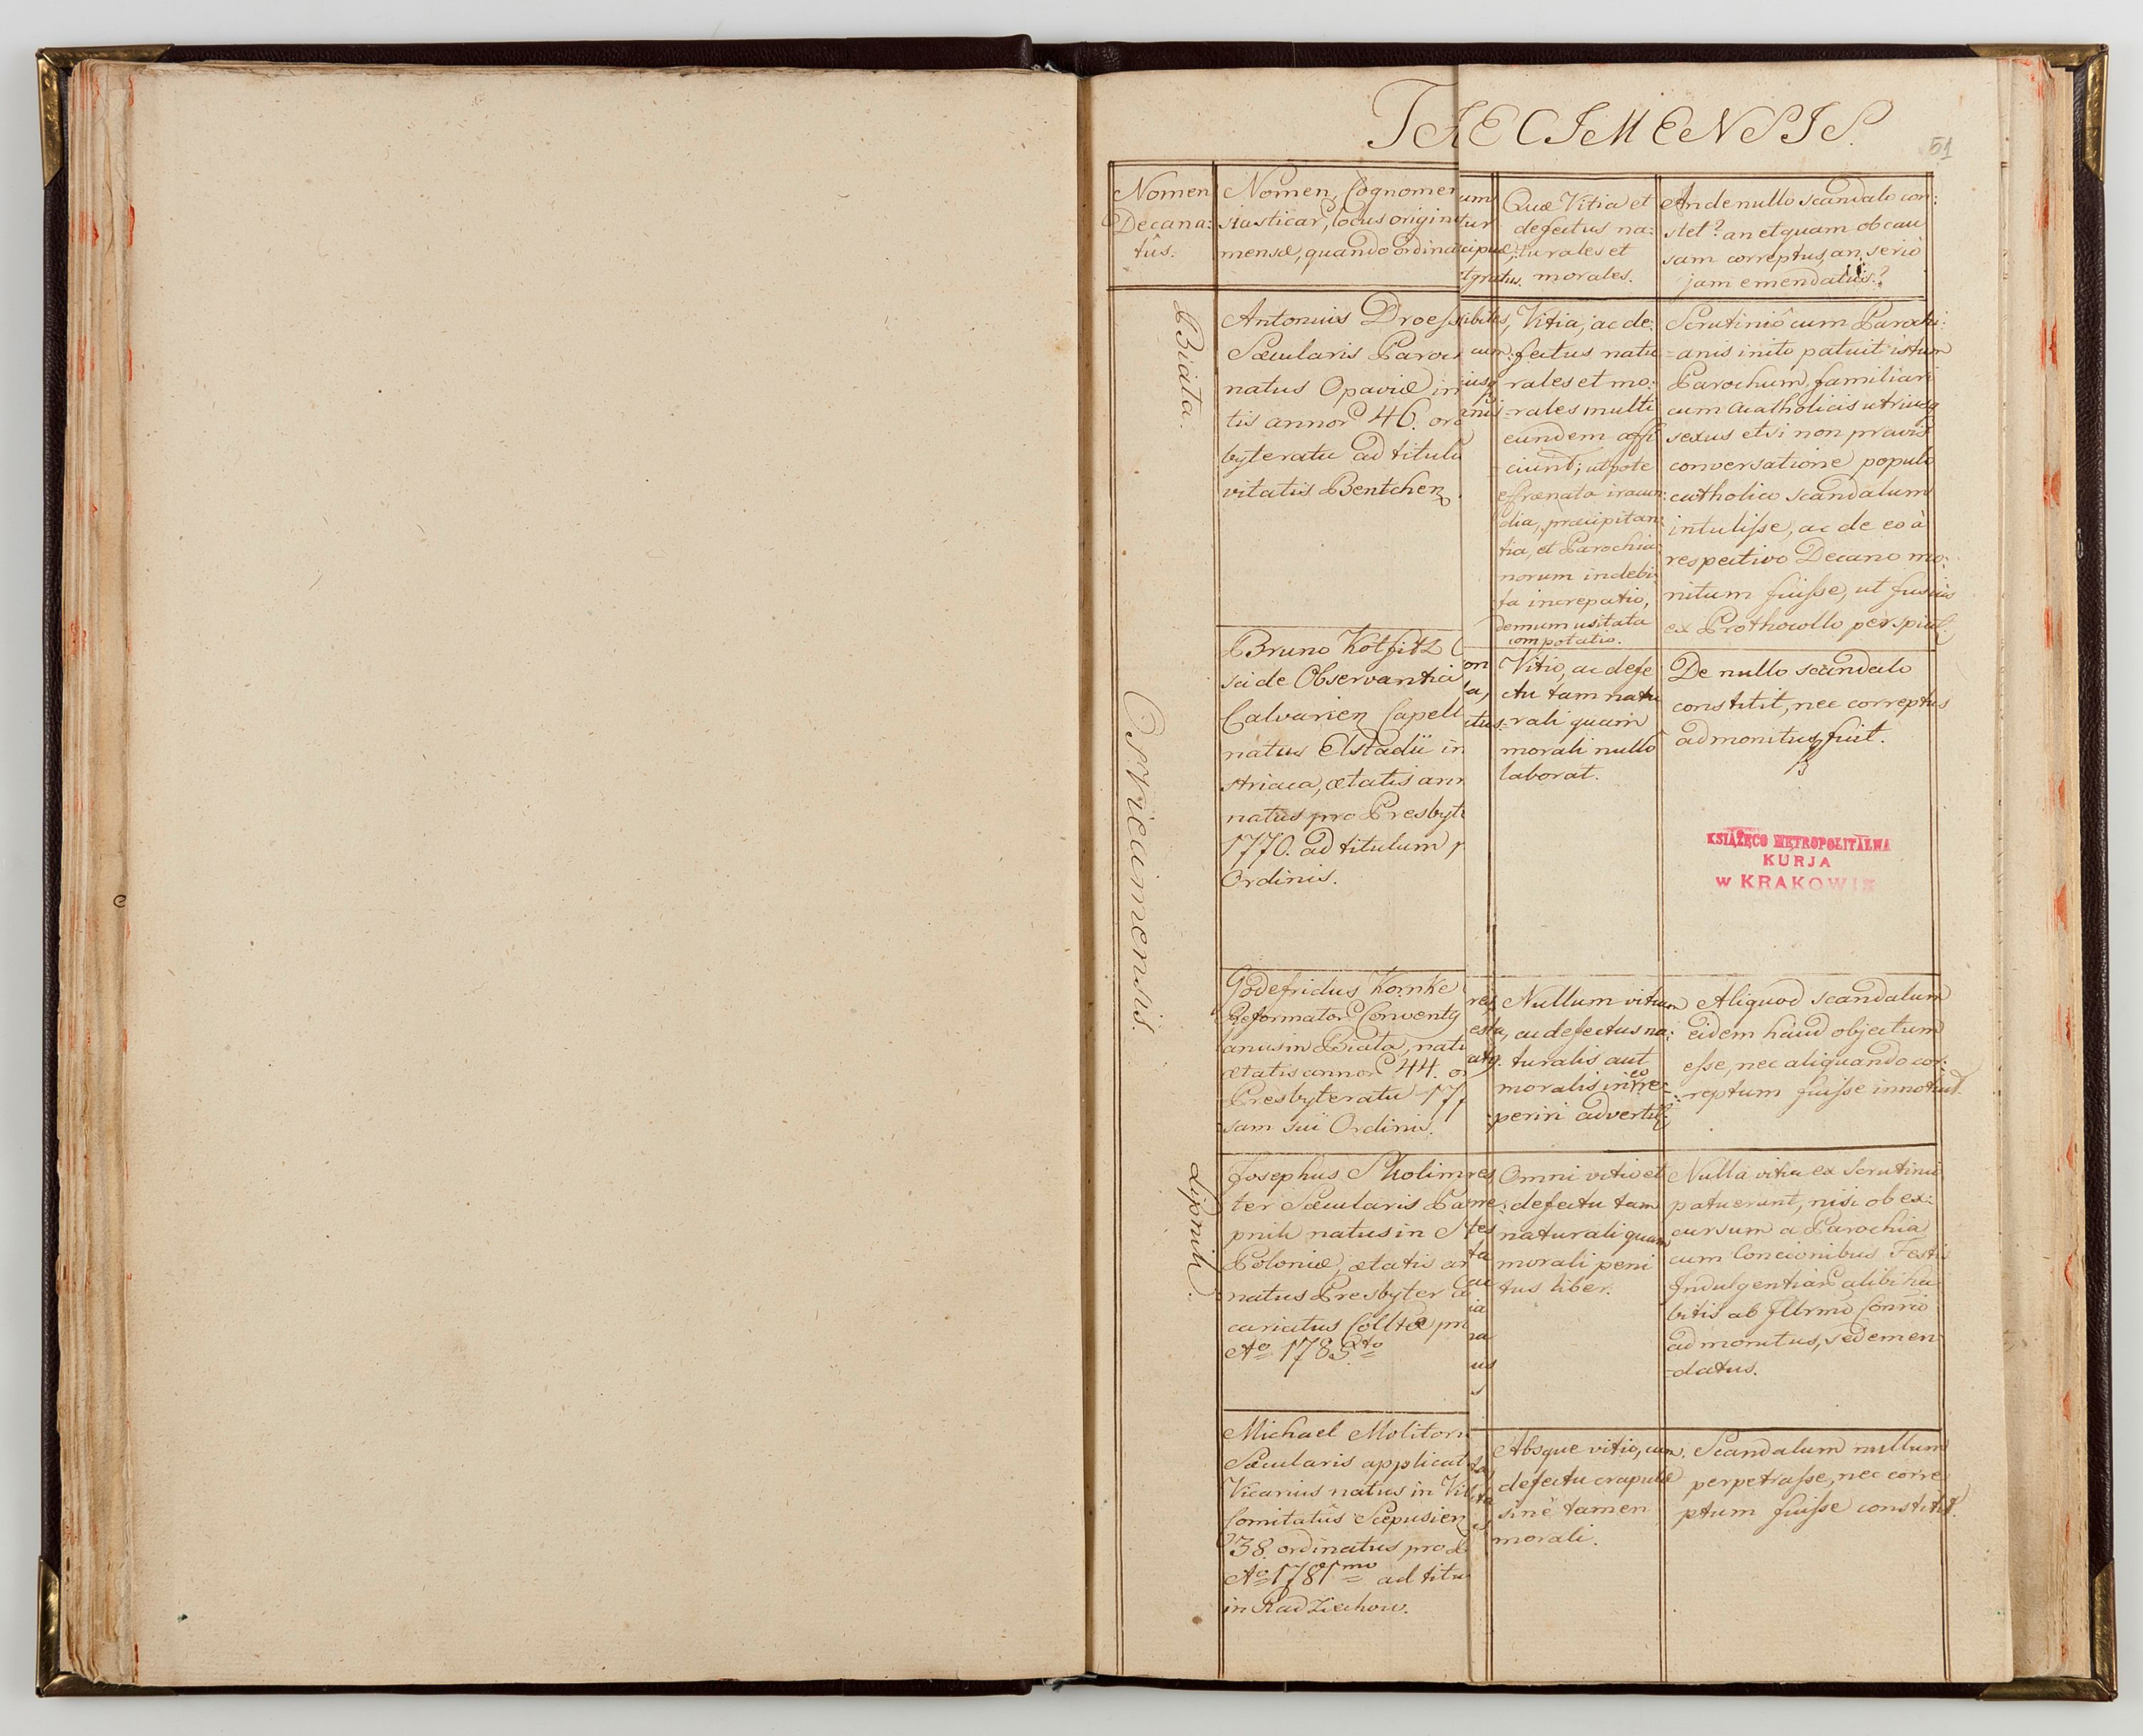 TAECIMENSIS.
51
Nomen
Decana:
tûs.
Nomen, Cognomen
siasticar, locus origin
mensæ, quando ordina
um
tur
cipuè,
tgratus.
Quæ Vitia et
defectus na:
turales et
morales.
An de nullo scandalo con:
stet? an et quam ob cau
sam correptus, an seriò
jam emendatus?
Osviecimensis.
Biała.
Antonius Droess
Sæcularis Paroc
natus Opaviæ in
tis annor 46. ord
byteratu ad titulu
vitatis Bentchen
Vitia, ac de:
fectus natu
rales et mo:
rales multi
eundem affi
ciunt; utpote
effrænata iracun:
dia, præcipitan:
tia, et Parochia:
norum indebi:
ta increpatio,
demum usitata
compotatio.
Scrutiniô cum Parochi:
anis inito patuit istum
Parochum, familiari
cum Acatholicis utriusq
sexus etsi non pravis
conversatione populo
catholico scandalum
intulisse, ac de eo à
respectivo Decano mo:
nitum fuisse, ut fusius
ex Prothocollo perspici
Bruno Kotfitz
sci de Observantia
Calvarien Capell
natus Elstadii in
striaca, ætatis ann
natus pro Presbyt
1770. ad titulum p
Ordinis.
on
ta,
itus
Vitio, ac defe
ctu tam natu
rali quam
morali nullô
laborat.
De nullo scandalo
constitit, nec correptus
admonitus fuit.
KSIĄŻĘCO METROPOLITALNA
KURJA
w KRAKOWIE
Godefridus Kornke
Reformator Conventq
lanus in Biała, nat
ætatis annor 44. or
Presbyteratu 177
sam sui Ordinis.
Nullum vitium
ac defectus na:
turalis aut
moralis in eo re:
periri advertit
Aliquod scandalum
eidem haud objectum
esse, nec aliquando cor:
reptum fuisse innotuit.
Lipnik.
Josephus Skolim
ter Sæcularis Pa
pnik natus in S
Poloniæ, ætatis an
natus Presbyter
cariatus Colltæ pr
Aº 1785to
Omni vitio et
defectu tam
naturali quam
morali peni
tus liber.
Nulla vitia ex Scrutinio
patuerunt, nisi ob ex:
cursum a Parochia
cum Concionibus Festis
Indulgentiar alibi ha
bitis ab Illrmo Conrio
admonitus, sed emen
datus.
Michael Molitoris
Sæcularis applicat
Vicarius natus in Vil
Comitatûs Scepusien
38. ordinatus pro
Aº 1781mo ad titu
in Radziechow.
Absque vitio, cum
defectu crapulæ
sinè tamen
morali.
Scandalum nullum
perpetrasse, nec corre
ptum fuisse constitit.